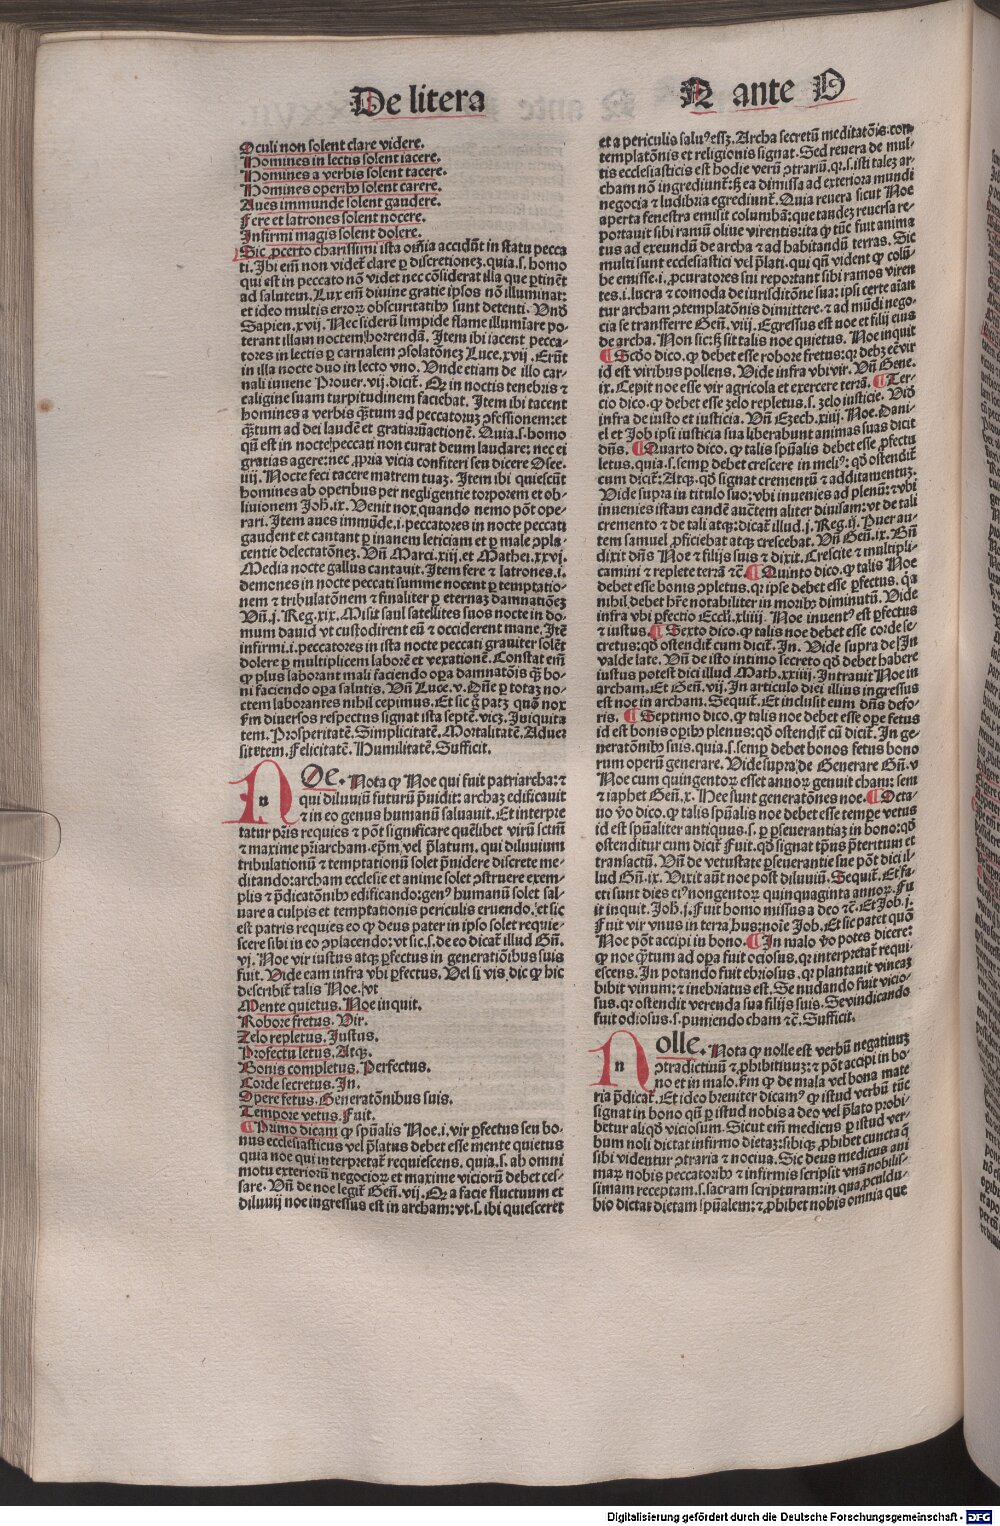 De litera
N ante O
Oculi non solent clare videre.
Homines in lectis solent iacere.
Homines a verbis solent tacere.
Homines operibꝰ solent carere.
Aues immunde solent gaudere.
Fere et latrones solent nocere.
Infirmi magis solent dolere.
Sic ꝓcerto charissimi ista om̄ia accidūt in statu pecca
ti. Ibi em̄ non videt̄ clare ꝑ discretionez. quia. s. homo
qui est in peccato nō videt nec cōsiderat illa que ꝑtinēt
ad salutem. Lux em̄ diuine gratie ipsos nō illuminat:
et ideo multis erroꝝ obscuritatibꝰ sunt detenti. Vnd̄
Sapien. xvij. Nec siderū limpide flame illumīare po-
terant illam noctem horrendā. Item ibi iacent pecca-
tores in lectis ꝑ carnalem ꝯsolatōneꝫ Luce. xvij. Erūt
in illa nocte duo in lecto vno. Unde etiam de illo car-
nali iuuene Prouer. vij. dicit̄. Qꝛ in noctis tenebris ⁊
caligine suam turpitudinem faciebat. Item ibi tacent
homines a verbis qͣtum ad peccatoruꝫ ꝯfessionem: et
qͣtum ad dei laudē et gratiarūactionē. Quia. s. homo
qn̄ est in nocte peccati non curat deum laudare: nec ei
gratias agere: nec ꝓpria vicia confiteri seu dicere Osee.
iiij. Nocte feci tacere matrem tuaꝫ. Item ibi quiescūt
homines ab operibus per negligentie torporem et ob-
liuionem Joh̄. ix. Venit nox quando nemo pōt ope-
rari. Item aues immūde. i. peccatores in nocte peccati
gaudent et cantant ꝑ inanem leticiam et ꝑ male ꝯpla-
centie delectatōneꝫ. Vn̄ Marci. xiij. et Mathei. xxvj.
Media nocte gallus cantauit. Item fere ⁊ latrones. i.
demones in nocte peccati summe nocent ꝑ temptatio-
nem ⁊ tribulatōnem ⁊ finaliter ꝑ eternaꝫ damnatiōeꝫ
Vn̄. j. Reg. xix. Misit saul satellites suos nocte in do-
mum dauid vt custodirent eū ⁊ occiderent mane. Itē
infirmi. i. peccatores in ista nocte peccati grauiter solēt
dolere ꝑ multiplicem laborē et vexationē. Constat em̄
ꝙ plus laborant mali faciendo oꝑa damnatōis qͣ bo-
ni faciendo oꝑa salutis. Vn̄ Luce. v. Dn̄e ꝑ totaꝫ no-
ctem laborantes nihil cepimus. Et sic ḡ patꝫ quō nox
ẜm diuersos respectus signat ista septē. vicꝫ. Iniquita
tem. Prosperitatē. Simplicitatē. Mortalitatē. Aduer
sitetem. Felicitatē. Humilitatē. Sufficit.
n Oe. Nota ꝙ Noe qui fuit patriarcha: ⁊
qui diluuiū futurū p̄uidit: archaꝫ edificauit
⁊ in eo genus humanū saluauit. Et interpre
tatur pr̄is requies ⁊ pōt significare quēlibet virū sctm̄
⁊ maxime pr̄iarcham. ep̄m. vel p̄latum. qui diluuium
tribulationū ⁊ temptationū solet p̄uidere discrete me-
ditando: archam ecclesie et anime solet ꝯstruere exem-
plis ⁊ p̄dicatōnibꝰ edificando: genꝰ humanū solet sal-
uare a culpis et temptationis periculis eruendo. ⁊ sic
est patris requies eo ꝙ deus pater in ipso solet requie-
scere sibi in eo ꝯplacendo: vt sic. s. de eo dicat̄ illud Gn̄.
vj. Noe vir iustus atqꝫ ꝑfectus in generatiōibus suis
fuit. Vide eam infra vbi ꝑfectus. Vel si vis. dic ꝙ hic
describit̄ talis Noe. vt
Mente quietus. Noe inquit.
Robore fretus. Vir.
Zelo repletus. Justus.
Profectu letus. Atqꝫ.
Bonis completus. Perfectus.
Corde secretus. In.
Opere fetus. Generatōnibus suis.
Tempore vetus. Fuit.
¶ Primo dicam ꝙ spūalis Noe. i. vir ꝑfectus seu bo-
nus ecclesiasticus vel p̄latus debet esse mente quietus
quia noe qui interpretat̄ requiescens. quia. s. ab omni
motu exteriorū negocioꝝ et maxime viciorū debet ces-
sare. Vn̄ de noe legit̄ Gen̄. vij. Qꝛ a facie fluctuum et
diluuij noe ingressus est in archam: vt. s. ibi quiesceret
et a periculis saluꝰ esseꝫ. Archa secretū meditatōis: con-
templatōnis et religionis signat. Sed reuera de mul-
tis ecclesiasticis est hodie verū ꝯtrariū. qꝛ. s. isti taleꝫ ar-
cham nō ingrediunt̄: sꝫ ea dimissa ad exteriora mundi
negocia ⁊ ludibria egrediunt̄. Quia reuera sicut Noe
aperta fenestra emisit columbā: que tandeꝫ reuersa re-
portauit sibi ramū oliue virentis: ita ꝙ tūc fuit anima
tus ad exeundū de archa ⁊ ad habitandū terras. Sic
multi sunt ecclesiastici vel p̄lati. qui qn̄ vident ꝙ colū-
be emisse. i. ꝓcuratores sui reportant sibi ramos viren
tes. i. lucra ⁊ comoda de iurisditōne sua: ipsi certe aīan
tur archam ꝯtemplatōnis dimittere. ⁊ ad mūdi nego-
cia se transferre Gen̄. viij. Egressus est noe et filij eius
de archa. Non sic: sꝫ sit talis noe quietus. Noe inquit
¶ Scd̄o dico. ꝙ debet esse robore fretus: qꝛ debꝫ eē vir
id est viribus pollens. Vide infra vbi vir. Vn̄ Gene.
ix. Cepit noe esse vir agricola et exercere terrā. ¶ Ter-
cio dico. ꝙ debet esse zelo repletus. s. zelo iusticie. Vid̄
infra de iusto et iusticia. Vn̄ Ezech. xiiij. Noe. Dani-
el et Job ipsi iusticia sua liberabunt animas suas dicit
dn̄s. ¶ Quarto dico. ꝙ talis spūalis debet esse ꝓfectu
letus. quia. s. semꝑ debet crescere in meliꝰ: qd̄ ostendit̄
cum dicit̄: Atqꝫ. qd̄ signat crementū ⁊ additamentuꝫ.
Vide supra in titulo suo: vbi inuenies ad plenū: ⁊ vbi
inuenies istam eandē auctēm aliter diuisam: vt de tali
cremento ⁊ de tali atqꝫ: dicat̄ illud. j. Reg. ij. Puer au-
tem samuel ꝓficiebat atqꝫ crescebat. Vn̄ Gen̄. ix. Bn̄
dixit dn̄s Noe ⁊ filijs suis ⁊ dixit. Crescite ⁊ multipli-
camini ⁊ replete terrā ⁊c̄. ¶ Quinto dico. ꝙ talis Noe
debet esse bonis ꝯpletus. qꝛ ipse debet esse ꝑfectus. qͥa
nihil debet hr̄e notabiliter in moribꝰ diminutū. Vide
infra vbi ꝑfectio Eccli. xliiij. Noe inuentꝰ est ꝑfectus
⁊ iustus. ¶ Sexto dico. ꝙ talis noe debet esse corde se-
cretus: qd̄ ostendit̄ cum dicit̄. In. Vide supra de In
valde late. Vn̄ de isto intimo secreto qd̄ debet habere
iustus potest dici illud Math. xxiiij. Intrauit Noe in
archam. Et Gen̄. vij. In articulo diei illius ingressus
est noe in archam. Sequit̄. Et inclusit eum dn̄s defo-
ris. ¶ Septimo dico. ꝙ talis noe debet esse oꝑe fetus
id est bonis oꝑibꝰ plenus: qd̄ ostendit̄ cū dicit̄. In ge-
neratōnibꝰ suis. quia. s. semꝑ debet bonos fetus bono
rum operū generare. Vide supra de Generare Gn̄. v
Noe cum quingentoꝝ esset annoꝝ genuit cham: sem
⁊ iaphet Gen̄. x. Hee sunt generatōnes noe. ¶ Octa-
uo v̄o dico. ꝙ talis spūalis noe debet esse tempe vetus
id est spūaliter antiquus. s. ꝑ ꝑseuerantiaꝫ in bono: qd̄
ostenditur cum dicit̄ Fuit. qd̄ signat tp̄us p̄teritum et
transactū. Vn̄ de vetustate ꝑseuerantie sue pōt dici il-
lud Gn̄. ix. Vixit aūt noe post diluuiū. Sequit̄. Et fa-
cti sunt dies eiꝰ nongentoꝝ quinquaginta annoꝝ. Fu
it inquit. Joh̄. j. Fuit homo missus a deo ⁊c̄. Et Job. j.
Fuit vir vnus in terra hus: noīe Job. Et sic patet quō
Noe pōt accipi in bono. ¶ In malo v̄o potes dicere:
ꝙ noe qͣtum ad oꝑa fuit ociosus. qꝛ interpretat̄ requi-
escens. In potando fuit ebriosus. qꝛ plantauit vineaꝫ
bibit vinum: ⁊ inebriatus est. Se nudando fuit vicio-
sus. qꝛ ostendit verenda sua filijs suis. Se vindicando
fuit odiosus. s. puniendo cham ⁊c̄. Sufficit.
n Olle. Nota ꝙ nolle est verbū negatiuuꝫ
ꝯtradictiuū ⁊ ꝓhibitiuuꝫ: ⁊ pōt accipi in bo-
no et in malo. ẜm ꝙ de mala vel bona mate
ria p̄dicat̄. Et ideo breuiter dicamꝰ ꝙ istud verbū tūc
signat in bono qn̄ ꝑ istud nobis a deo vel p̄lato prohi-
betur aliqd̄ viciosum. Sicut em̄ medicus ꝑ istud ver-
bum noli dictat infirmo dietaꝫ: sibiqꝫ ꝓhibet cuncta q̄
sibi videntur ꝯtraria ⁊ nociua. Sic deus medicus ani
maꝝ nobis peccatoribꝰ ⁊ infirmis scripsit vnā nobilis-
simam receptam. s. sacram scripturam: in qua ꝓculdu-
bio dictat dietam spūalem: ⁊ ꝓhibet nobis omnia que
Digitalisierung gefördert durch die Deutsche Forschungsgemeinschaft - DFG